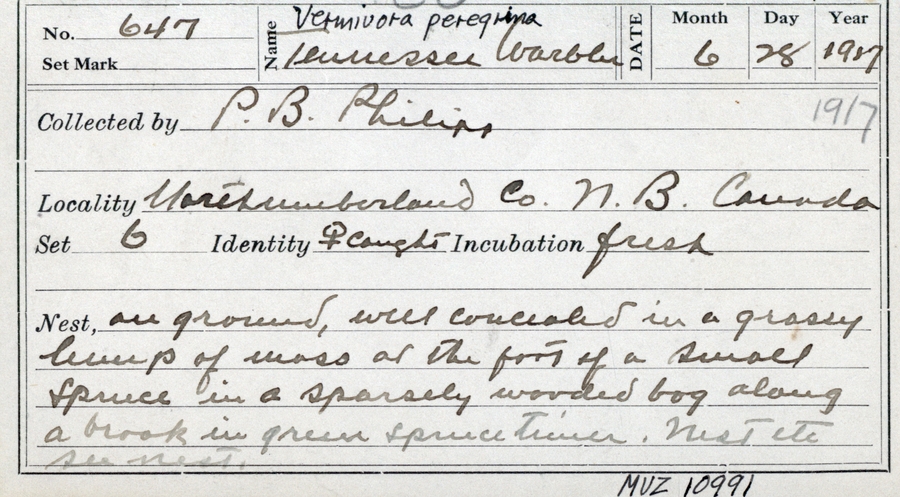 No. 647
Set Mark
Name
Vermivora peregrina
Tennessee Warbler
DATE
Month Day Year
6 28 1917
Collected by P. B. Philipp
1917
Locality Northumberland Co. N. B. Canada
Set 6 Identity ♀ caught Incubation fresh
Nest, on ground, well concealed in a grassy
hump of moss at the foot of a small
spruce in a sparsely wooded bog along
a brook in green spruce timber. Nest etc
see nest.
MVZ 10991